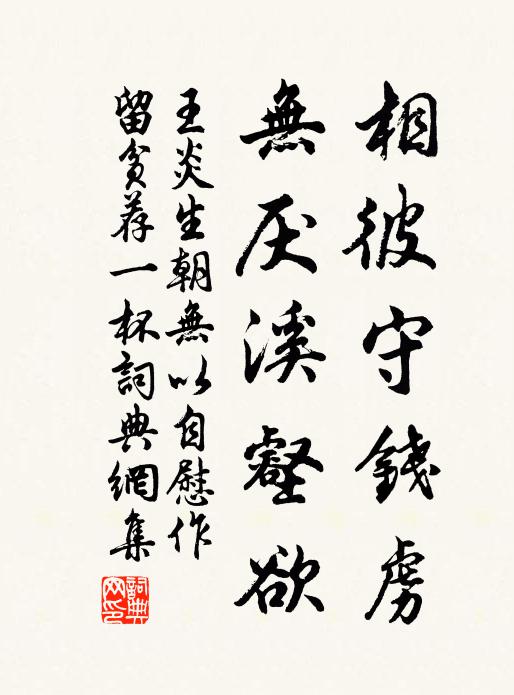 相彼守錢虜
無厌溪壑欲
王炎生朝無以自慰作
留貧荐一杯詞典網集
詞典网印